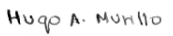 Hugo A. Murillo